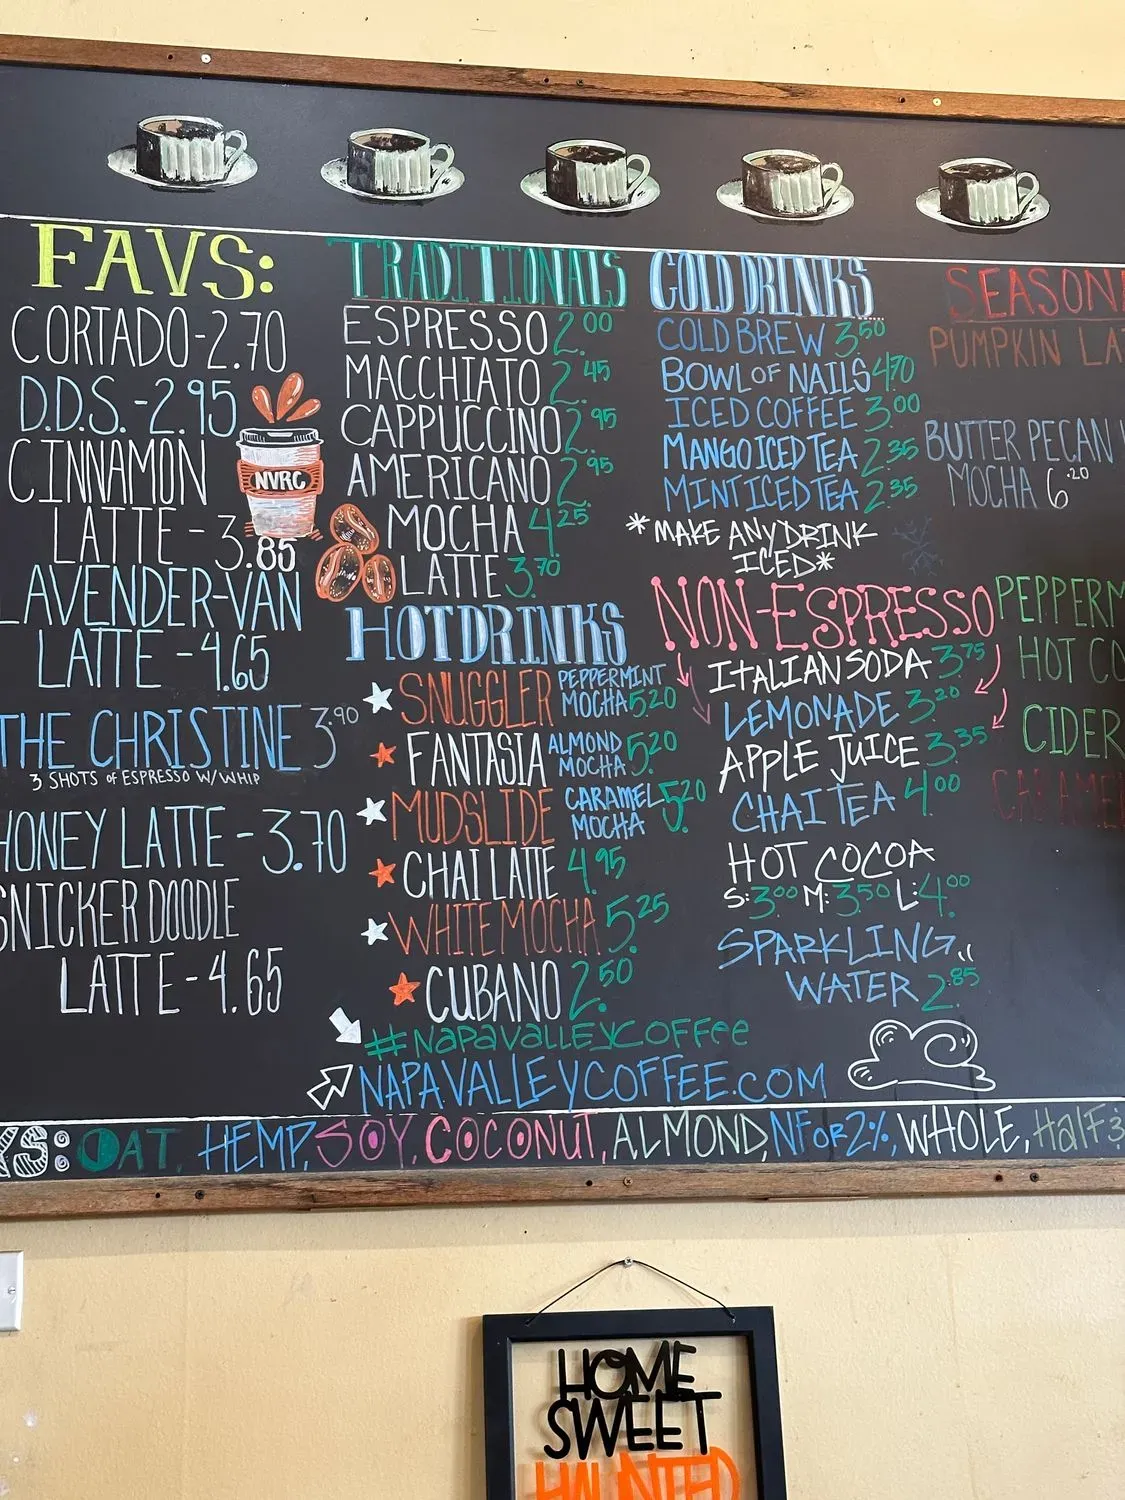 FAVS:
CORTADO-2.70
D.D.S.-2.95
CINNAMON
LATTE - 3.85
LAVENDER-VAN
LATTE - 4.65
THE CHRISTINE 3.90
3 SHOTS OF ESPRESSO W/WHIP
HONEY LATTE - 3.70
SNICKER DOODLE
LATTE - 4.65
NVRC
TRADITIONALS
ESPRESSO 2.00
MACCHIATO 2.45
CAPPUCCINO 2.95
AMERICANO 2.95
MOCHA 4.25
LATTE 3.70
HOT DRINKS
SNUGGLER PEPPERMINT MOCHA 5.20
FANTASIA ALMOND MOCHA 5.20
MUDSLIDE CARAMEL MOCHA 5.20
CHAI LATTE 4.95
WHITE MOCHA 5.25
CUBANO 2.50
#NAPAVALLEYCOFFee
NAPAVALLEYCOFFEE.COM
COLD DRINKS
COLD BREW 3.50
BOWL OF NAILS 4.70
ICED COFFEE 3.00
MANGO ICED TEA 2.35
MINT ICED TEA 2.35
*MAKE ANY DRINK
ICED*
NON-ESPRESSO
ITALIAN SODA 3.75
LEMONADE 3.20
APPLE JUICE 3.35
CHAI TEA 4.00
HOT COCOA
S:3.00 M:3.50 L:4.00
SPARKLING
WATER 2.85
SEASON
PUMPKIN LA
BUTTER PECAN
MOCHA 6.20
PEPPERM
HOT CO
CIDER
CARAME
KS: OAT, HEMP, SOY, COCONUT, ALMOND, NF OR 2%, WHOLE, HALF &
HOME
SWEET
HAUNTED